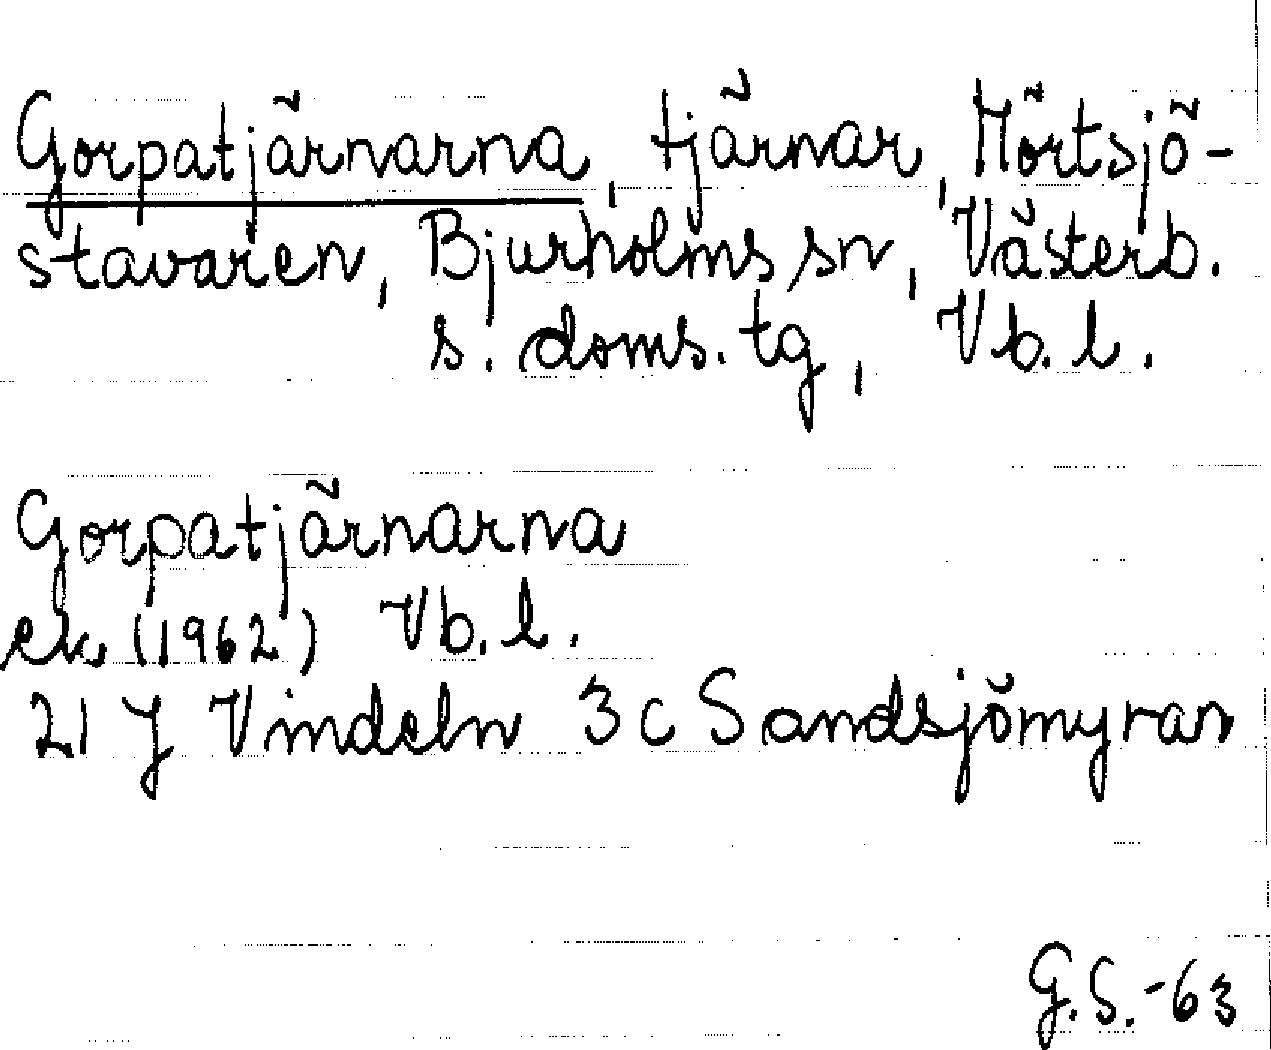 Gorpatjärnarna, tjärnar, Mörtsjö-
stavaren, Bjurholms sn, Västerb.
s. doms. tg, Vb. l.
Gorpatjärnarna
ek (1962) Vb. l.
21 J Vindeln 3 c Sandsjömyran
G.S.-63